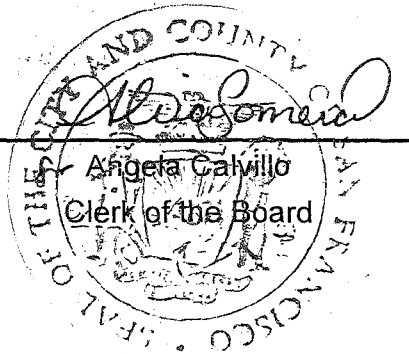 SEAL OF THE CITY AND COUNTY OF SAN FRANCISCO
Angela Calvillo
Clerk of the Board